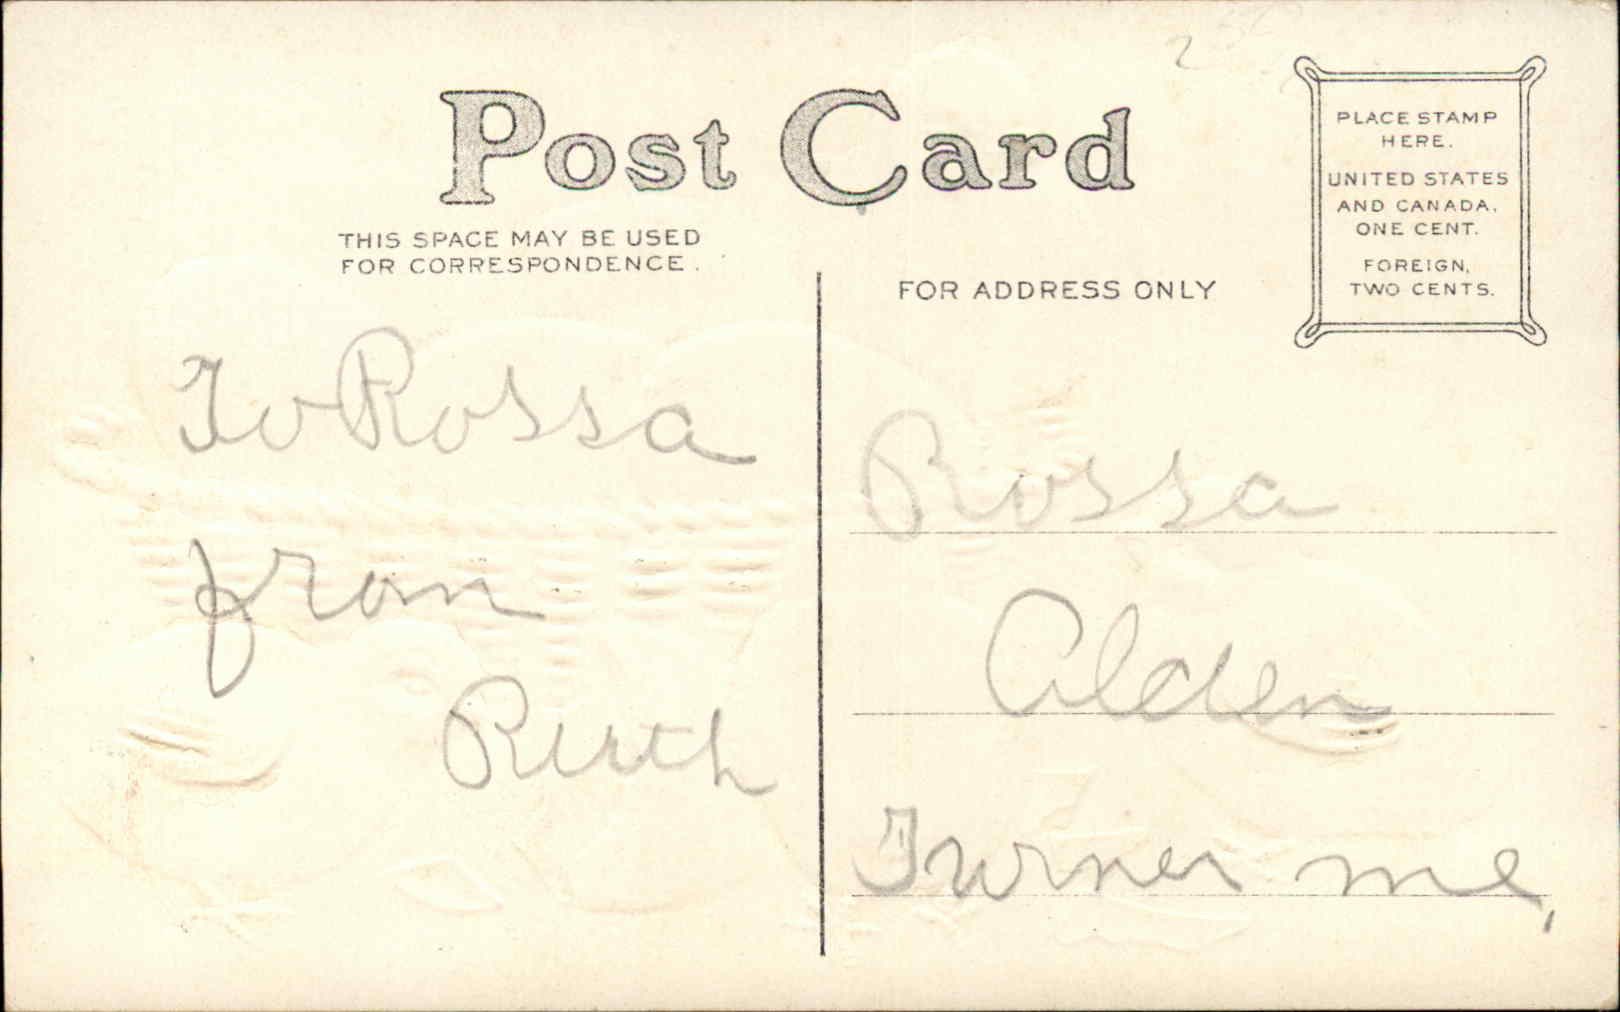 Post Card
THIS SPACE MAY BE USED
FOR CORRESPONDENCE.
FOR ADDRESS ONLY
PLACE STAMP
HERE.
UNITED STATES
AND CANADA,
ONE CENT.
FOREIGN,
TWO CENTS.
To Rossa
from
Ruth
Rossa
Alden
Turner me,